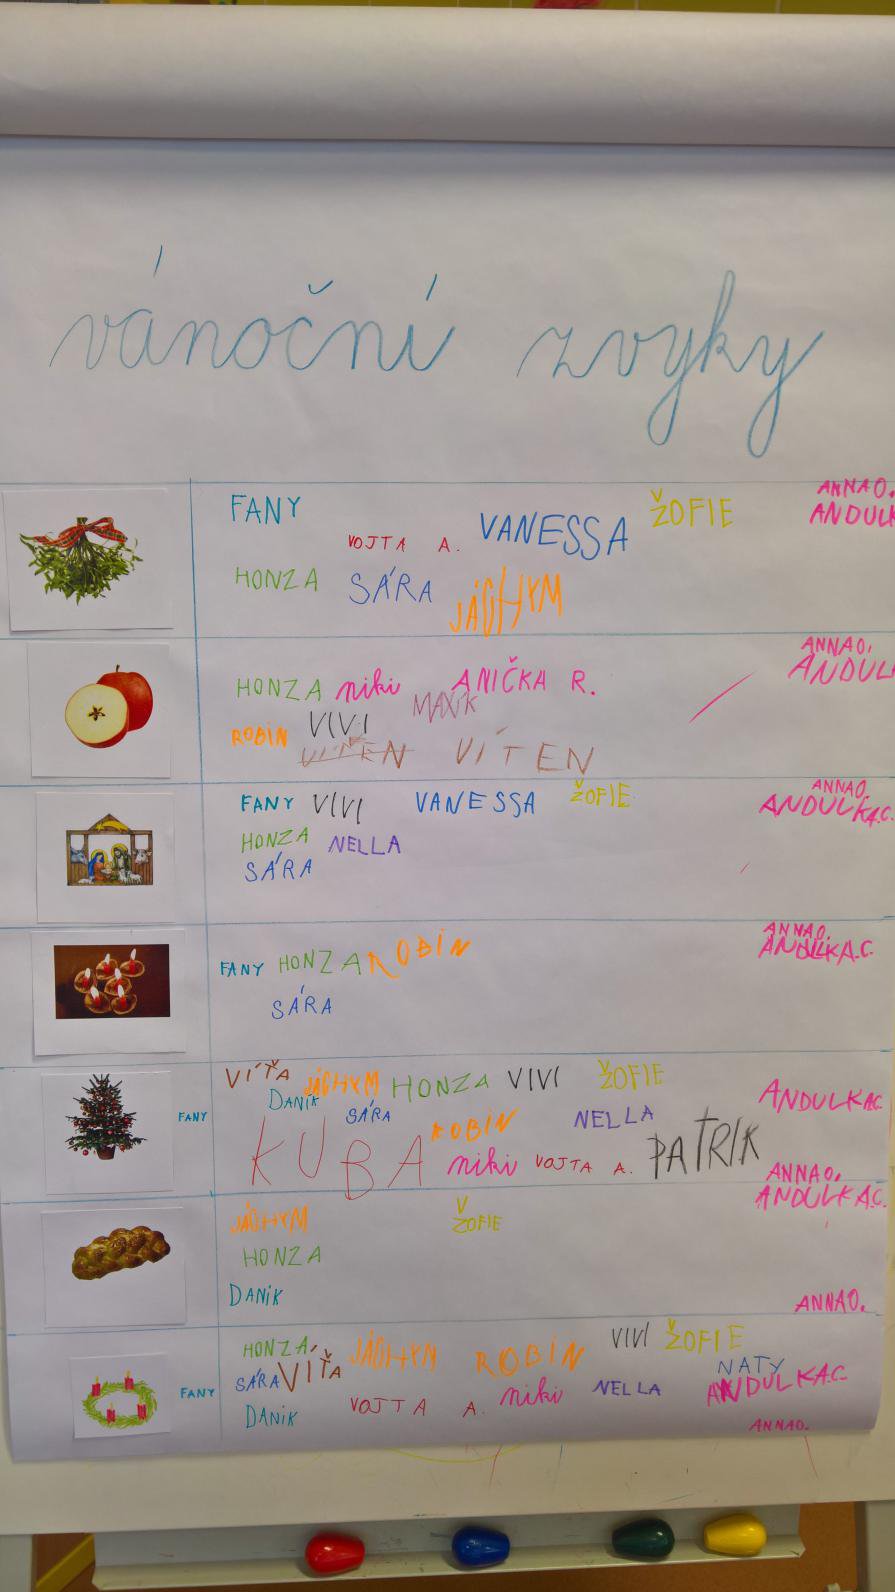 vánoční zvyky
ANNA O.
FANY VOJTA A. VANESSA ŽOFIE ANDULK
HONZA SÁRA JÁCHYM
ANNA O.
HONZA niki ANIČKA R. ANDUL
MAXÍK
ROBIN VIVI
VÍTEN VÍTEN
ANNA O.
FANY VIVI VANESSA ŽOFIE ANDULKA C.
HONZA NELLA
SÁRA
ANNA O.
FANY HONZA ROBIN ANDULKA C.
SÁRA
VÍŤA JÁCHYM HONZA VIVI ŽOFIE ANDULKA C.
DANIK
FANY SÁRA ROBIN NELLA
KUBA niki VOJTA A. PATRIK
ANNA O.
ANDULKA C.
JÁCHYM ŽOFIE
HONZA
DANIK ANNA O.
HONZA JÁCHYM ROBIN VIVI ŽOFIE
SÁRA VÍŤA NATY
FANY niki NELLA ANDULKA C.
DANIK VOJTA A.
ANNA O.